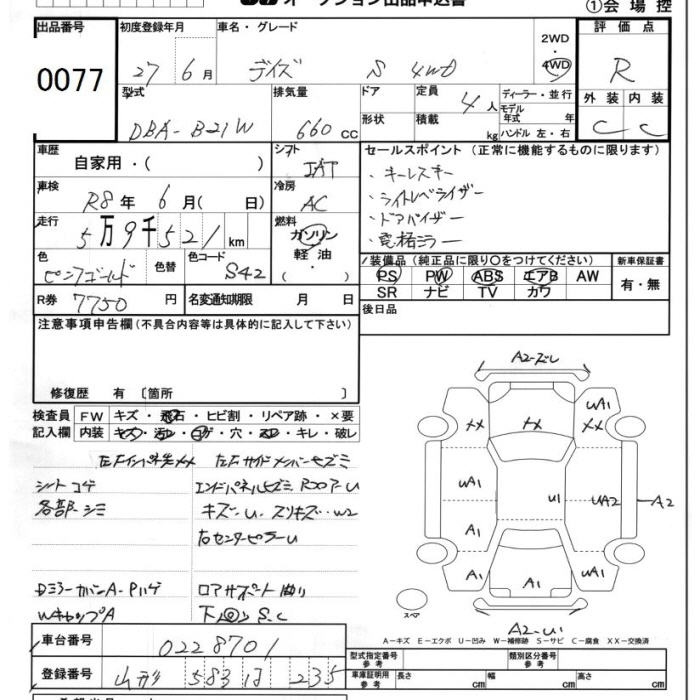 オークション出品申込書
①会場控
出品番号 初度登録年月 車名・グレード 2WD 評価点
0077 27年 6月 デイズ S 4WD 4WD R
型式 排気量 ドア 定員 ディーラー・並行 外装 内装
DBA-B21W 660cc 4人 モデル年式 年 C C
形状 積載 kg ハンドル 左・右
車歴 シフト セールスポイント (正常に機能するものに限ります)
自家用・( ) IAT
・キーレスキー
車検 冷房
R8年 6月( 日) AC
・ライトレベライザー
・ドアバイザー
走行 燃料
5万9千521km ガソリン 軽油・
・電格ミラー
色 色替 色コード
ピンクゴールド S42
装備品 (純正品に限り○をつけてください) 新車保証書
PS PW ABS エアB AW 有・無
SR ナビ TV カワ
R券 7750円 名変通知期限 月 日
後日品
注意事項申告欄(不具合内容等は具体的に記入して下さい)
修復歴 有〔箇所 〕
検査員 FW キズ・飛石・ヒビ割・リペア跡・×要
記入欄 内装 キズ・汚レ・コゲ・穴・スレ・キレ・破レ
左Fインパネ先メメ 左Fサイドメンバーセズミ
シートコゲ エンドパネルセズミ Rフロア-U
各部-シミ キズ-U スリキズ…W2
右センターピラーU
Dミラーカバ-A-Pハゲ ロアサポート曲り
WキャップA 下回S.C
車台番号 0228701
登録番号 山形 583 235
A2-ズレ
XX XX UA1 XX
UA1 U1 UA2 A2
A1
A1 A1 UA1
スペア
A2-U
A-キズ E-エクボ U-凹み W-補修跡 S-サビ C-腐食 XX-交換済
型式指定番号 参考 類別区分番号 参考
車庫証明用 参考 長さ cm 幅 cm 高さ cm